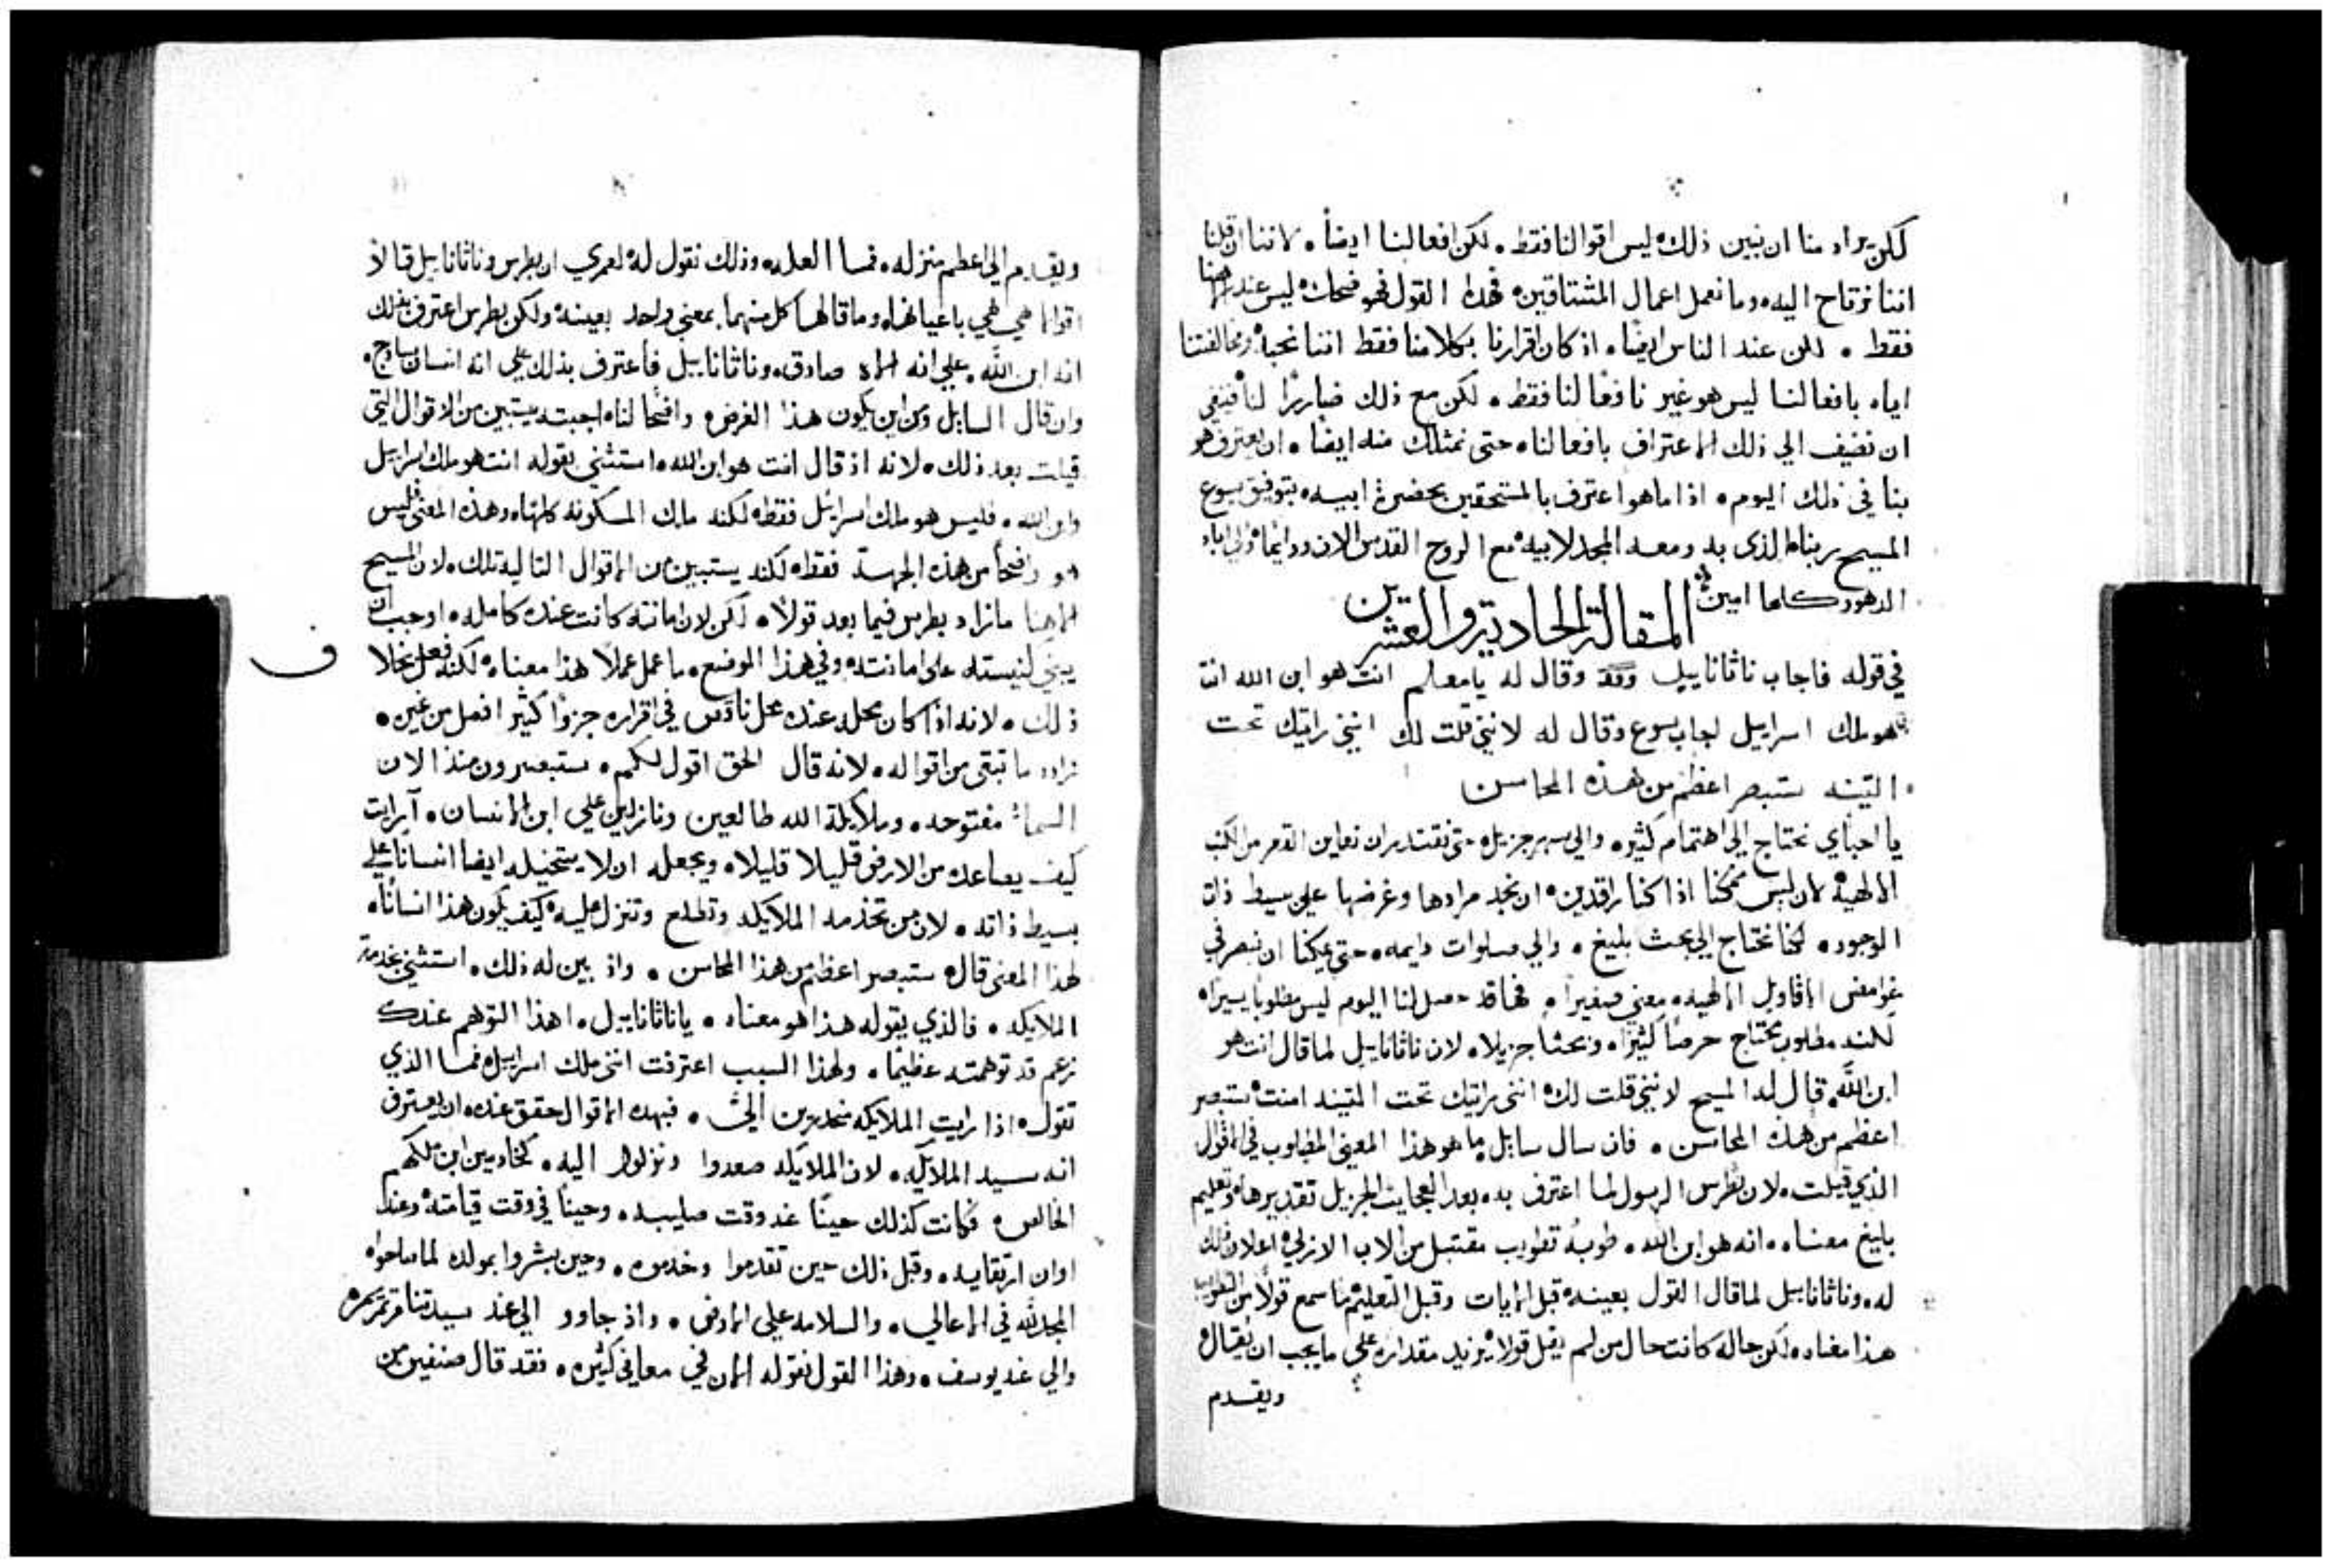 لكن يراد منا ان نبين ذلك ليس اقوالنا فقط. لكن افعالنا ايضاً. لاننا ان قلنا
اننا نرتاح اليه وما نعمل اعمال المشتاقين فهذا القول فهو ضحك ليس عند الله
فقط. لكن عند الناس ايضاً. اذ كان اقرارنا بكلامنا فقط اننا نحبه ومخالفتنا
اياه بافعالنا ليس هو غير نافعاً لنا فقط. لكن مع ذلك ضاراً لنا فينبغي
ان نضيف الي ذلك الاعتراف بافعالنا حتى نمتلك منه ايضاً. ان يعترف هو
بنا في ذلك اليوم. اذا ما هو اعترف بالمستحقين بحضرة ابيه. بتوفيق يسوع
المسيح ربنا الذى به ومعه المجد لابيه مع الروح القدس الان ودايماً والى اباد
الدهور كلها امين
المقالة الحادية والعشرين
في قوله فاجاب ناثاناييل وقال له يا معلم انت هو ابن الله انت
هو ملك اسراييل اجاب يسوع وقال له لانني قلت لك انني رايتك تحت
التينه ستبصر اعظم من هذه المحاسن
يا احباي نحتاج إلى اهتمام كثيره والي سهر جزيل حتى نقتدر ان نعاين القعر من الكتب
الالهية لان ليس ممكنا اذا كنا راقدين ان نجد مرادها وغرضها على بسيط ذات
الوجود. لكنا نحتاج الي بحث بليغ. والي صلوات دايمه. حتى يمكنا ان نبصر في
غوامض الاقاويل الالهيه معني صغيراً. فها قد حصل لنا اليوم ليس مطلوباً يسيراً
لكنه مطلوب يحتاج حرصاً كثيراً وبحثا جزيلا. لان ناثاناييل لما قال انت هو
ابن الله. قال له المسيح لانني قلت لك انني رايتك تحت التينه امنت ستبصر
اعظم من هذه المحاسن. فان سال سايل ما هو هذا المعني المطلوب في الاقوال
الذي قيلت. لان بطرس الرسول لما اعترف به بعد العجايب الجزيل تقديرها وتعليم
بليغ معناه. انه هو ابن الله. طوبه تطويب مقتبل من الاب الازلي اعلان ذلك
له. وناثاناييل لما قال القول بعينه قبل الايات وقبل التعليم ما سمع قولاً من التطويب
هذا معناه. لكن حاله كانت حال من لم يقل قولا يزيد مقداره على ما يجب ان يقال
ويقدم
ويقدم إلى اعظم منزله. فما العله وذلك نقول له لعمري ان بطرس وناثاناييل قالا
اقوالا هي هي باعيانها. وما قالها كل منهما بمعنى واحد بعينه ولكن بطرس اعترف بذلك
انه ابن الله. علي انه اله صادق. وناثاناييل فاعترف بذلك على انه انسان ساذج.
وان قال السايل ومن اين يكون هذا الغرض واضحا لنا اجبته يستبين من الاقوال التي
قيلت بعد ذلك. لانه اذ قال انت هو ابن الله. استثني بقوله انت هو ملك اسراييل
وابن الله. فليس هو ملك اسراييل فقط لكنه ملك المسكونه كلها. وهذه المعنى فليس
هو واضحاً من هذه الجهة فقط. لكنه يستبين من الاقوال التاليه تلك. لان المسيح
الهنا ما زاد بطرس فيما بعد قولاً. لكن لان امانته كانت عنده كامله. اوجب ان
يبني كنيسته على امانته وفي هذا الموضع. ما عمل عملاً هذا معناه لكنه فعل بخلاف
ذلك. لانه اذ كان محله عنده محل ناقص في اقراره جزواً كثيراً افضل من غيره.
زاده ما تبقى من اقواله. لانه قال الحق اقول لكم. ستبصرون منذ الان
السما مفتوحه. وملايكة الله طالعين ونازلين علي ابن الانسان. آرايت
كيف يصاعده من الارض قليلا قليلا. ويجعله ان لا يتخيله ايضا انساناً على
بسيط ذاته. لان من تخدمه الملايكه وتطلع وتنزل عليه كيف يكون هذا انساناً
لهذا المعنى قال ستبصر اعظم من هذا المحاسن. واذ بين له ذلك. استثني بخدمة
الملايكه. فالذي يقوله هذا هو معناه. يا ناثاناييل. اهذا التوهم عندك
نزعم قد توهمته عظيماً. ولهذا السبب اعترفت انني ملك اسراييل. فما الذي
تقول اذا رايت الملايكه منحدرين الي. فبهذه الاقوال حقق عنده ان يعترف
انه سيد الملايكه. لان الملايكه صعدوا ونزلوا اليه. كخادمين ابن ملكهم
الخالص فكانت كذلك حيناً عند وقت صليبه. وحيناً في وقت قيامته وعند
اوان ارتقايه. وقبل ذلك حين تقدموا وخدموه. وحين بشروا بمولده لما صاحوا
المجد لله في الاعالي. والسلامه علي الارض. واذ جاوو الي عند سيدتنا مرتمريم
والي عند يوسف. وهذا القول نقوله الان في معاني كثيره. فقد قال صنفين من
ف